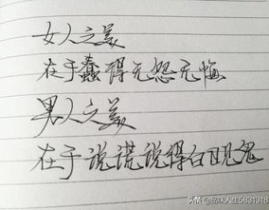 女人之美
在于蠢得无怨无悔
男人之美
在于说谎说得白日见鬼